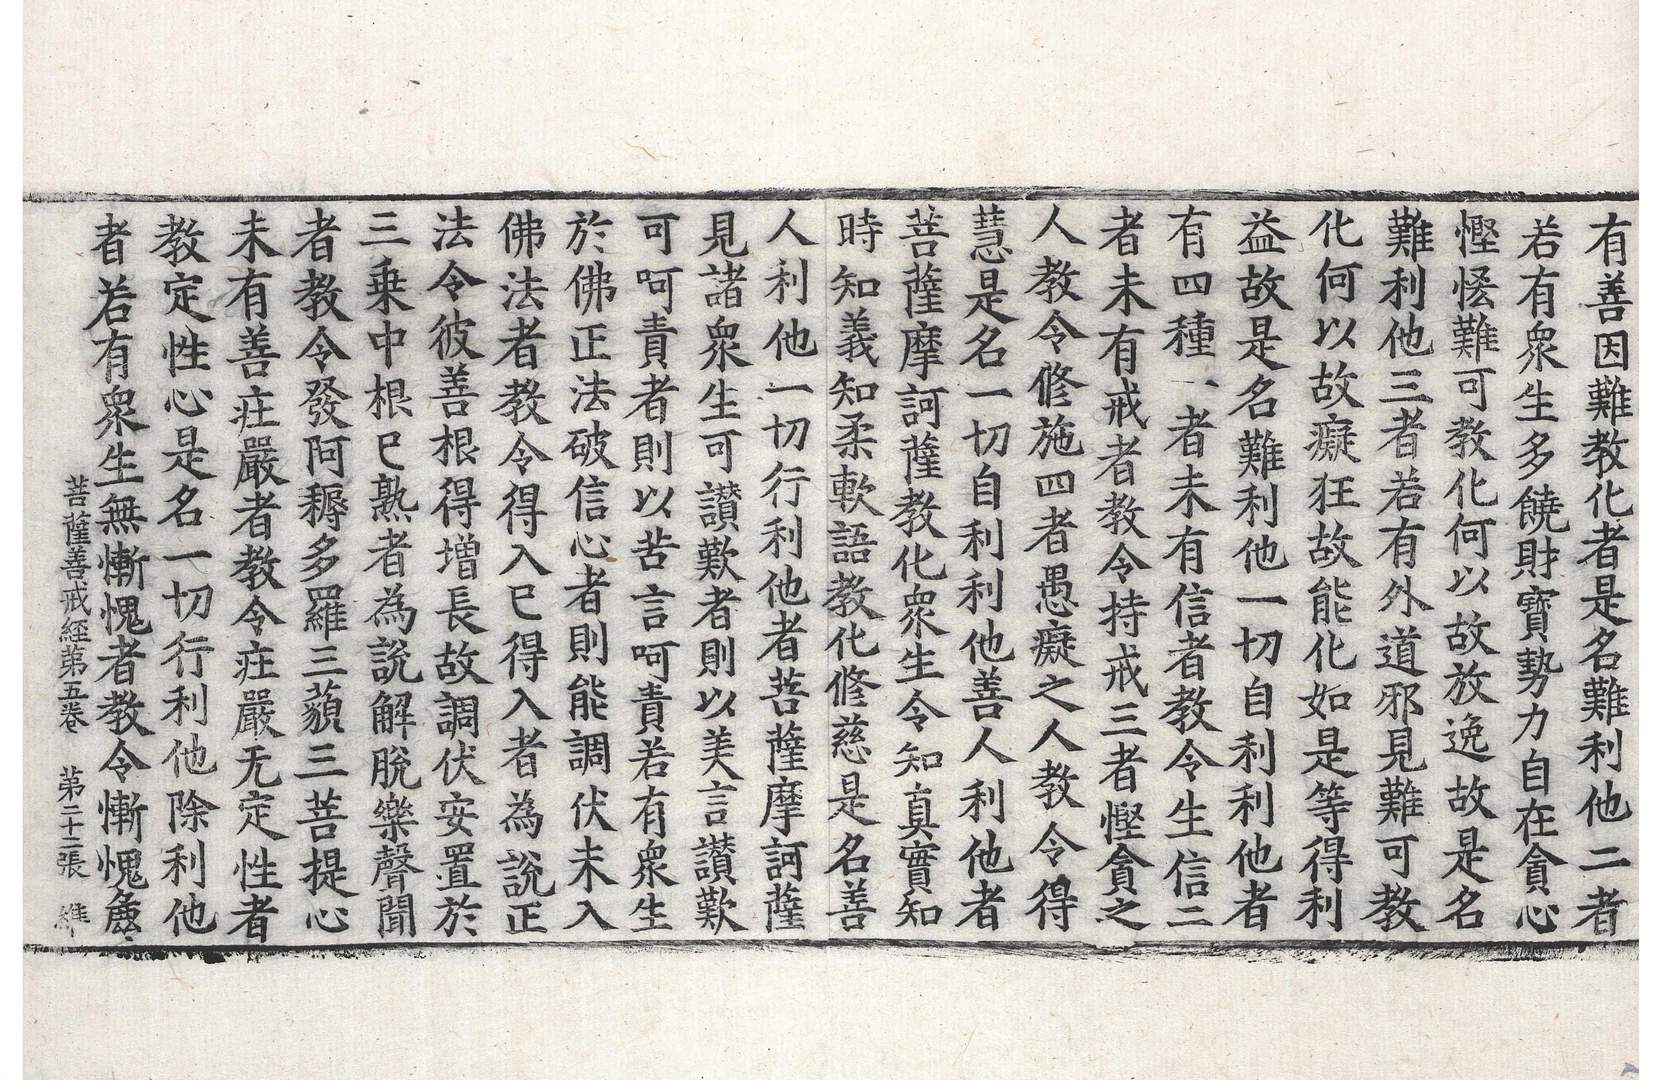 有善因難教化者是名難利他二者
若有衆生多饒財寳勢力自在貪心
慳恡難可教化何以故放逸故是名
難利他三者若有外道邪見難可教
化何以故癡狂故能化如是等得利
益故是名難利他一切自利利他者
有四種一者未有信者教令生信二
者未有戒者教令持戒三者慳貪之
人教令修施四者愚癡之人教令得
慧是名一切自利利他善人利他者
菩薩摩訶薩教化衆生令知真實知
時知義知柔軟語教化修慈是名善
人利他一切行利他者菩薩摩訶薩
見諸衆生可讃歎者則以美言讃歎
可呵責者則以苦言呵責若有衆生
於佛正法破信心者則能調伏未入
佛法者教令得入已得入者為說正
法令彼善根得增長故調伏安置於
三乗中根已熟者為說解脫樂聲聞
者教令發阿耨多羅三藐三菩提心
未有善疘嚴者教令疘嚴无定性者
教定性心是名一切行利他除利他
者若有衆生無慚愧者教令慚愧麁
菩薩善戒經第五卷 第二十二張 維